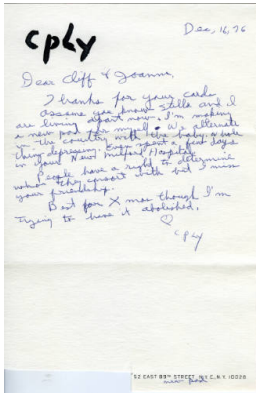 cply
Dec, 16, 76
Dear Cliff & Joanne,
Thanks for your card.
assume you know Stella and I
are living apart now. I'm making
a new pad for myself. We alternate
in the country with the baby. a whole
thing depressing. Even spent a few days
in your New Milford Hospital.
People have a right to determine
whom they consort with but I miss
your friendship.
Best for X mas though I'm
trying to have it abolished.
♡
cply
52 EAST 89th STREET, N.Y.C., N.Y. 10028
new pad